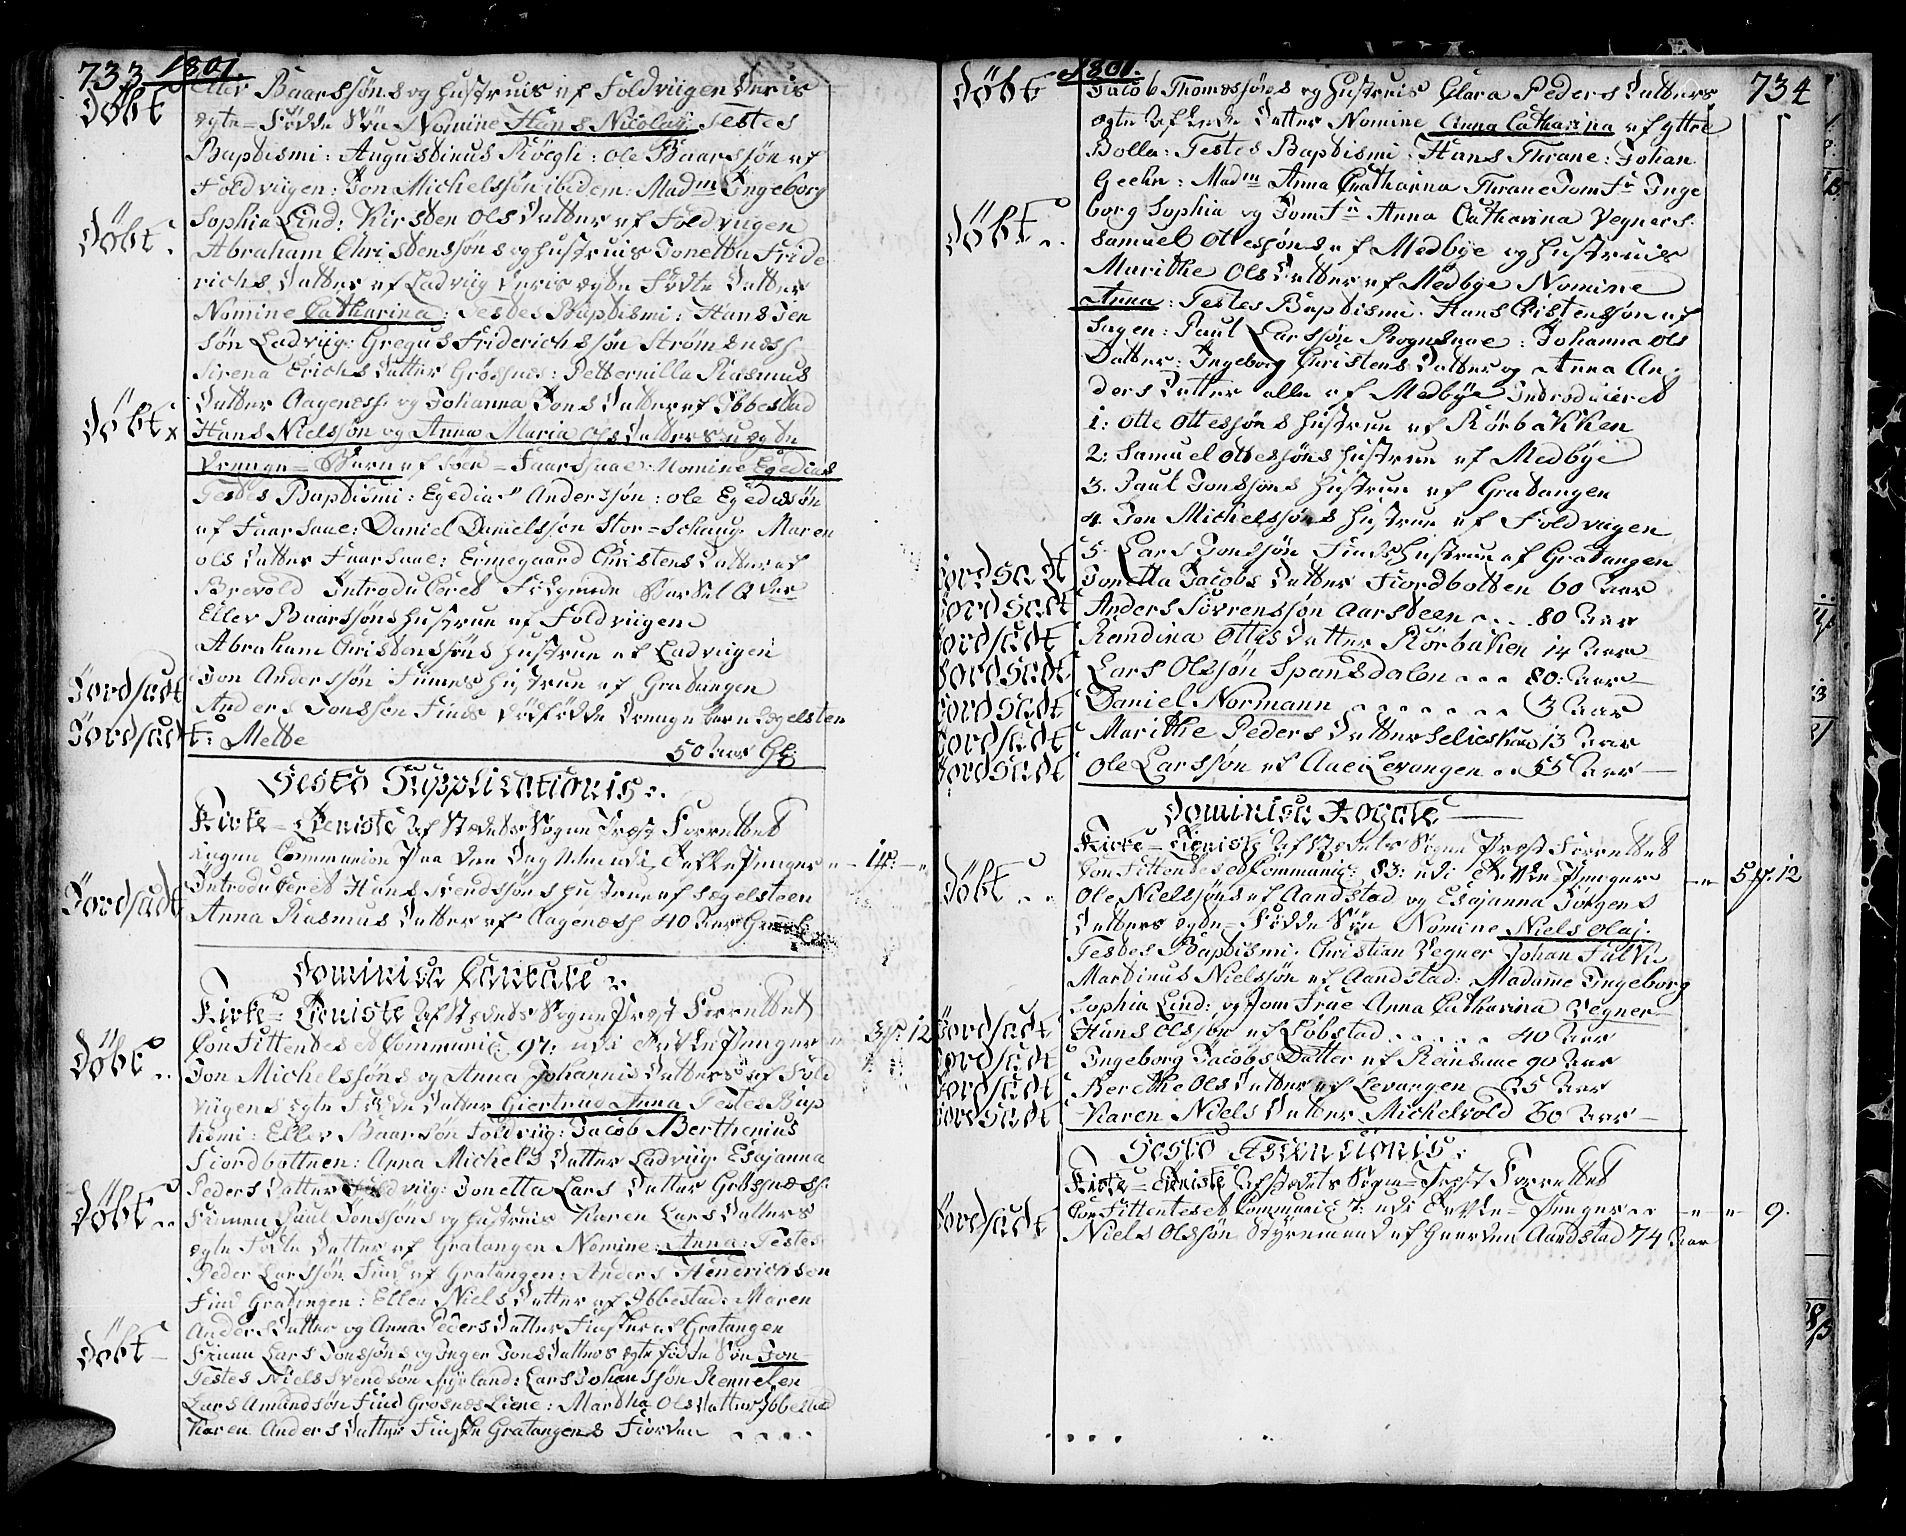 733 1801.
Döbt Eller Baarssöns og Hustruis af Foldviigen Deris
ægte-Födde Sön Nomine Hans Nicolay Testes
Baptismi: Augustinus Röegh: Ole Baarssön af
Foldviigen: Jon Michelssön ibidem: Madm Ingeborg
Sophia Lind: Kirsten Ols Datter af Foldviigen
Döbt. Abraham Christenssöns og Hustruis Jonetta Fride
richs Datter af Ladviig Deris ægte Födte Datter
Nomine Catharina: Testes Baptismi: Hans Jen
sön Ladviig: Gregus Friderichssön Strömsnæss
Sirena Erichs Datter Grössnes: Petternilla Rasmus
Datter Aagenæss og Johanna Jons Datter af Ibbestad
Döbt x Hans Nielssön og Anna Maria Ols Datters uægte
Drenge-Barn af Sörd-Faarsaae: Nomine Egedias
Testes Baptismi: Egedias Anderssön: Ole Egediasön
af Faarsaae: Daniel Danielssön Stor-Schaug Maren
Ols Datter Faarsaae: Ermegaard Christens Datter af
Brevold Introduceret Fölgende Barsel Qder
Eller Baarssöns Hustrue af Foldviigen
Abraham Christenssöns Hustrue af Ladviigen
Jon Anderssön Finnes Hustrue af Gratangen
Jordsadt Anders Jonssön Finds Dödfödde Drenge barn Sægelsten
Jordsadt: Mette 50 Aar Gl
Festo Supplicationis:
Kirke-Tieniste Af Stædets Sogne Præst Forrettet
ingen Communion Paa Den Dag Men udi Tekke Penger - 14: -
Introduceret Hans Svendssöns Hustrue af Sægelsteen
Jordsadt Anna Rasmus Datter af Aagenæss 40 Aar
Dominica Cantate
Kirke-Tieniste Af Stædets Sogne Præst Forrettet
Confittentes et Communic: 97: udi Tekke Penger 3 12
Döbt.. Jon Michelssöns og Anna Johannis Datters af Fold
viigens ægte Födde Datter Giertrud Anna Testes Bap
tismi: Eller Baarsön Foldviig: Jacob Berthenius
Fiordbottnen: Anna Michels Datter Ladviig Esajanna
Peders Datter Foldviig: Jonetta Lars Datter Grössnæss:
Döbt.. Finnen Paul Jonssöns og Hustruis Karen Lars Datters
ægte Födte Datter af Gratangen Nomine: Anna: Testes
Peder Larssön Find af Gratangen: Anders Hendrichsen
Find Gratangen: Ellen Niels Datter af Ibbestad: Maren
Anders Datter og Anna Peders Datter Finske af Gratangen
Döbt- Finnen Lars Jonssöns og Inger Jons Datters ægte födde Sön Jon
Testes Niels Svendsön Myrland: Lars Johanssön Rennelen
Lars Amundsön Find Grosnes Liene: Martha Ols Datter Ibbestad
Karen Anders Datter Finske Gratangens Fiorden ....
1801. 734
Döbt Jacob Thomessöns og Hustruis Clara Peders Datters
ægte Aflede Datter Nomine Anna Catharina af yttre
Bolla: Testes Baptismi: Hans Thrane: Johan
Geehn: Madm Anna Catharina Thrane Jomfr Inge
borg Sophia og Jomfr Anna Catharina Vegners.
Döbt.. Samuel Ottessöns af Medbye og Hustruis
Marithe Ols Datter af Medbye Nomine
Anna: Testes Baptismi: Hans Christenssön af
Sagen: Paul Larssön Rognsaae: Johanna Ols
Datter: Ingeborg Christens Datter og Anna An-
ders Datter alle af Medbye Introduceret
1: Otte Ottessöns Hustrue af Rörbakken
2: Samuel Ottessöns Hustrue af Medbye
3. Paul Jonssöns Hustrue af Gratangen
4. Jon Michelssöns Hustrue af Foldviigen
5. Lars Jonssön Finds Hustrue af Gratangen
Jordsadt Jonetta Jacobs Datter Fiordbotten 60 Aar
Jordsadt Anders Sörrenssön Aarsteen .... 80 Aar
Jordsadt Rendina Ottes Datter Rörbakken 14 Aar
Jordsadt Lars Olssön Spansdalen ... 80: Aar
Jordsadt Daniel Normann ....... 3 Aar
Jordsadt Marithe Peders Datter 13 Aar
Jordsadt Ole Larssön af Levangen .. 55 Aar
Dominica Rogate
Kirke-Tieniste Af Stædets Sogne Præst Forrettet
Confittentes et Communic: 83: udi Tekke-Penger - 5 12
Döbt.. Ole Nielssöns af Aandstad og Esajanna Jörgens
Datters ægte-Födde Sön Nomine Niels Olaj:
Testes Baptismi: Christian Vegner Johan Falch
Martinus Nielssön af Aandstad: Madame Ingeborg
Sophia Lind: og Jomfrue Anna Catharina Vegner
Jordsadt Hans Olssön af Löbstad ..... 40 Aar
Jordsadt Ingeborg Jacobs Datter af Rensaae 90 Aar
Jordsadt Berethe Ols Datter af Levangen 25 Aar
Jordsadt Karen Niels Datter Mickelvold 60 Aar
Festo Ascentionis:
Kirke-Tieniste Af Stædets Sogne-Præst Forrettet
Confittentes et Communic 7: udi Tekke-Penger .. - - 9.
Jordsadt Niels Olssön Styremand af Aandstad 74 Aar